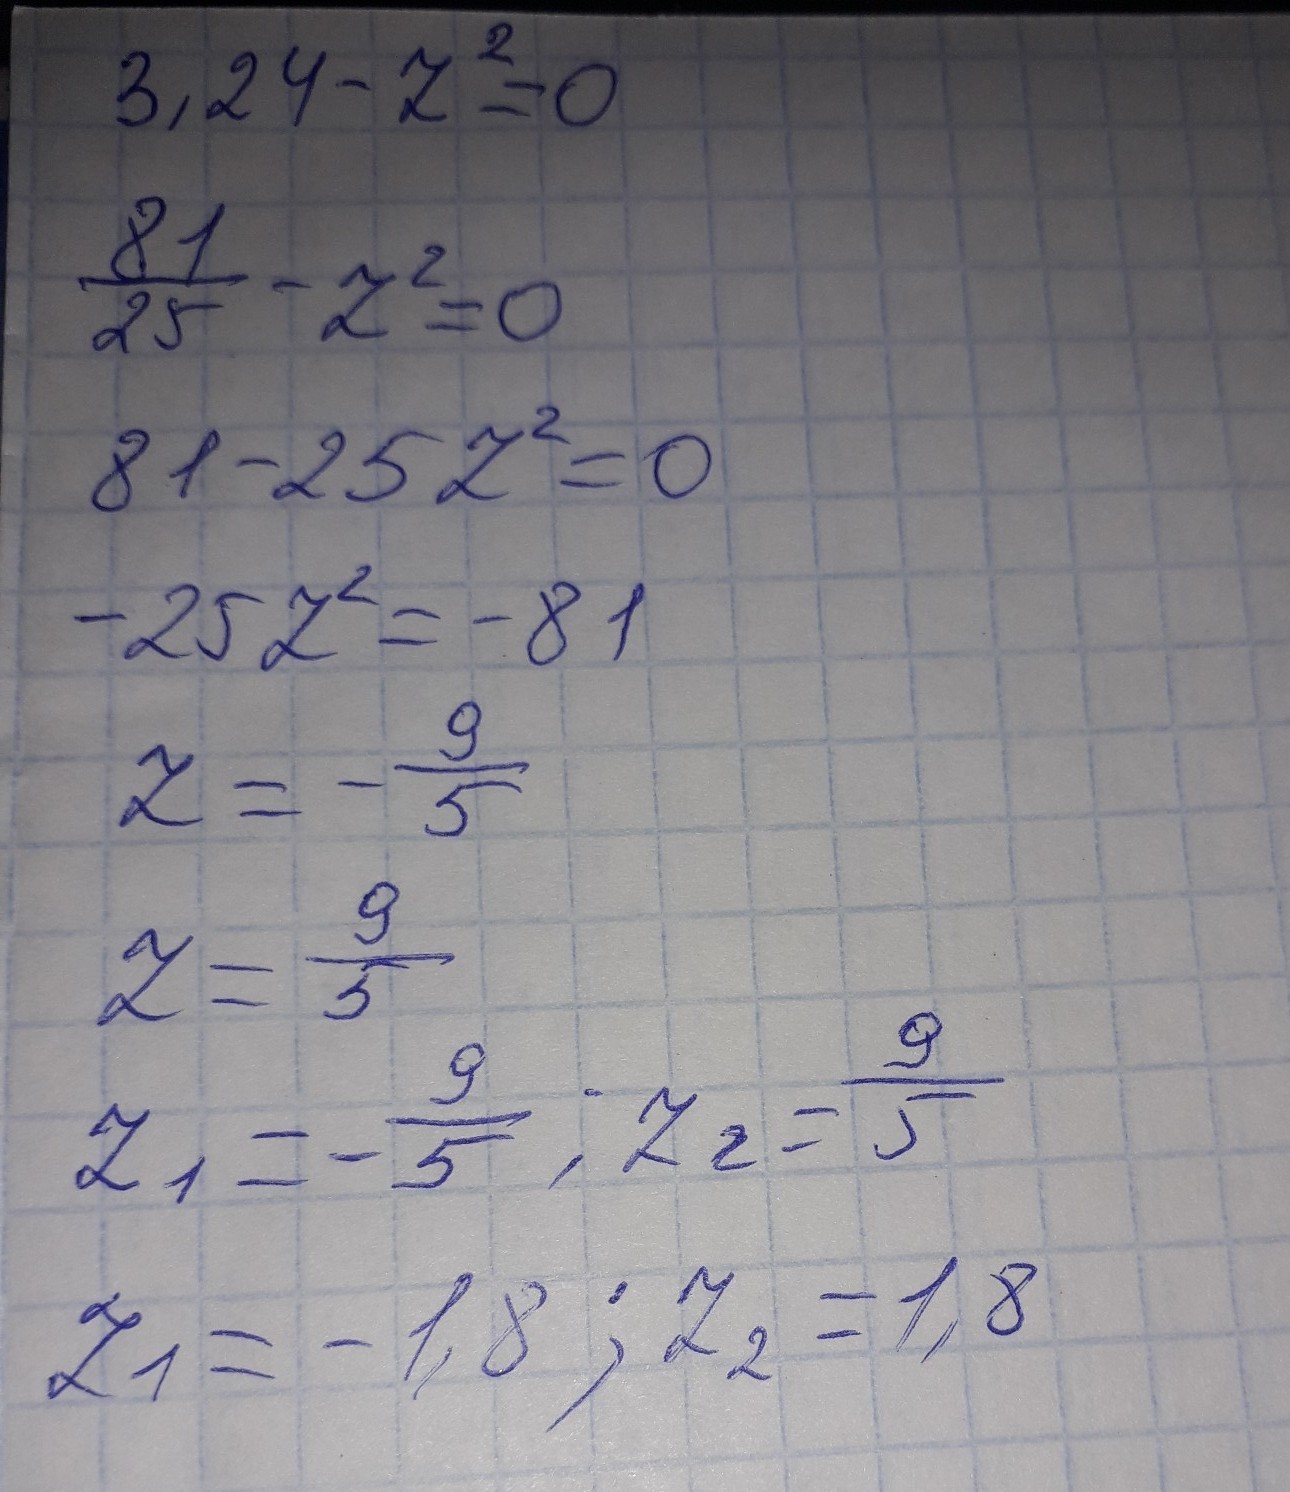 3,24 - z² = 0
81/25 - z² = 0
81 - 25z² = 0
-25z² = -81
z = -9/5
z = 9/5
z₁ = -9/5 ; z₂ = 9/5
z₁ = -1,8 ; z₂ = 1,8